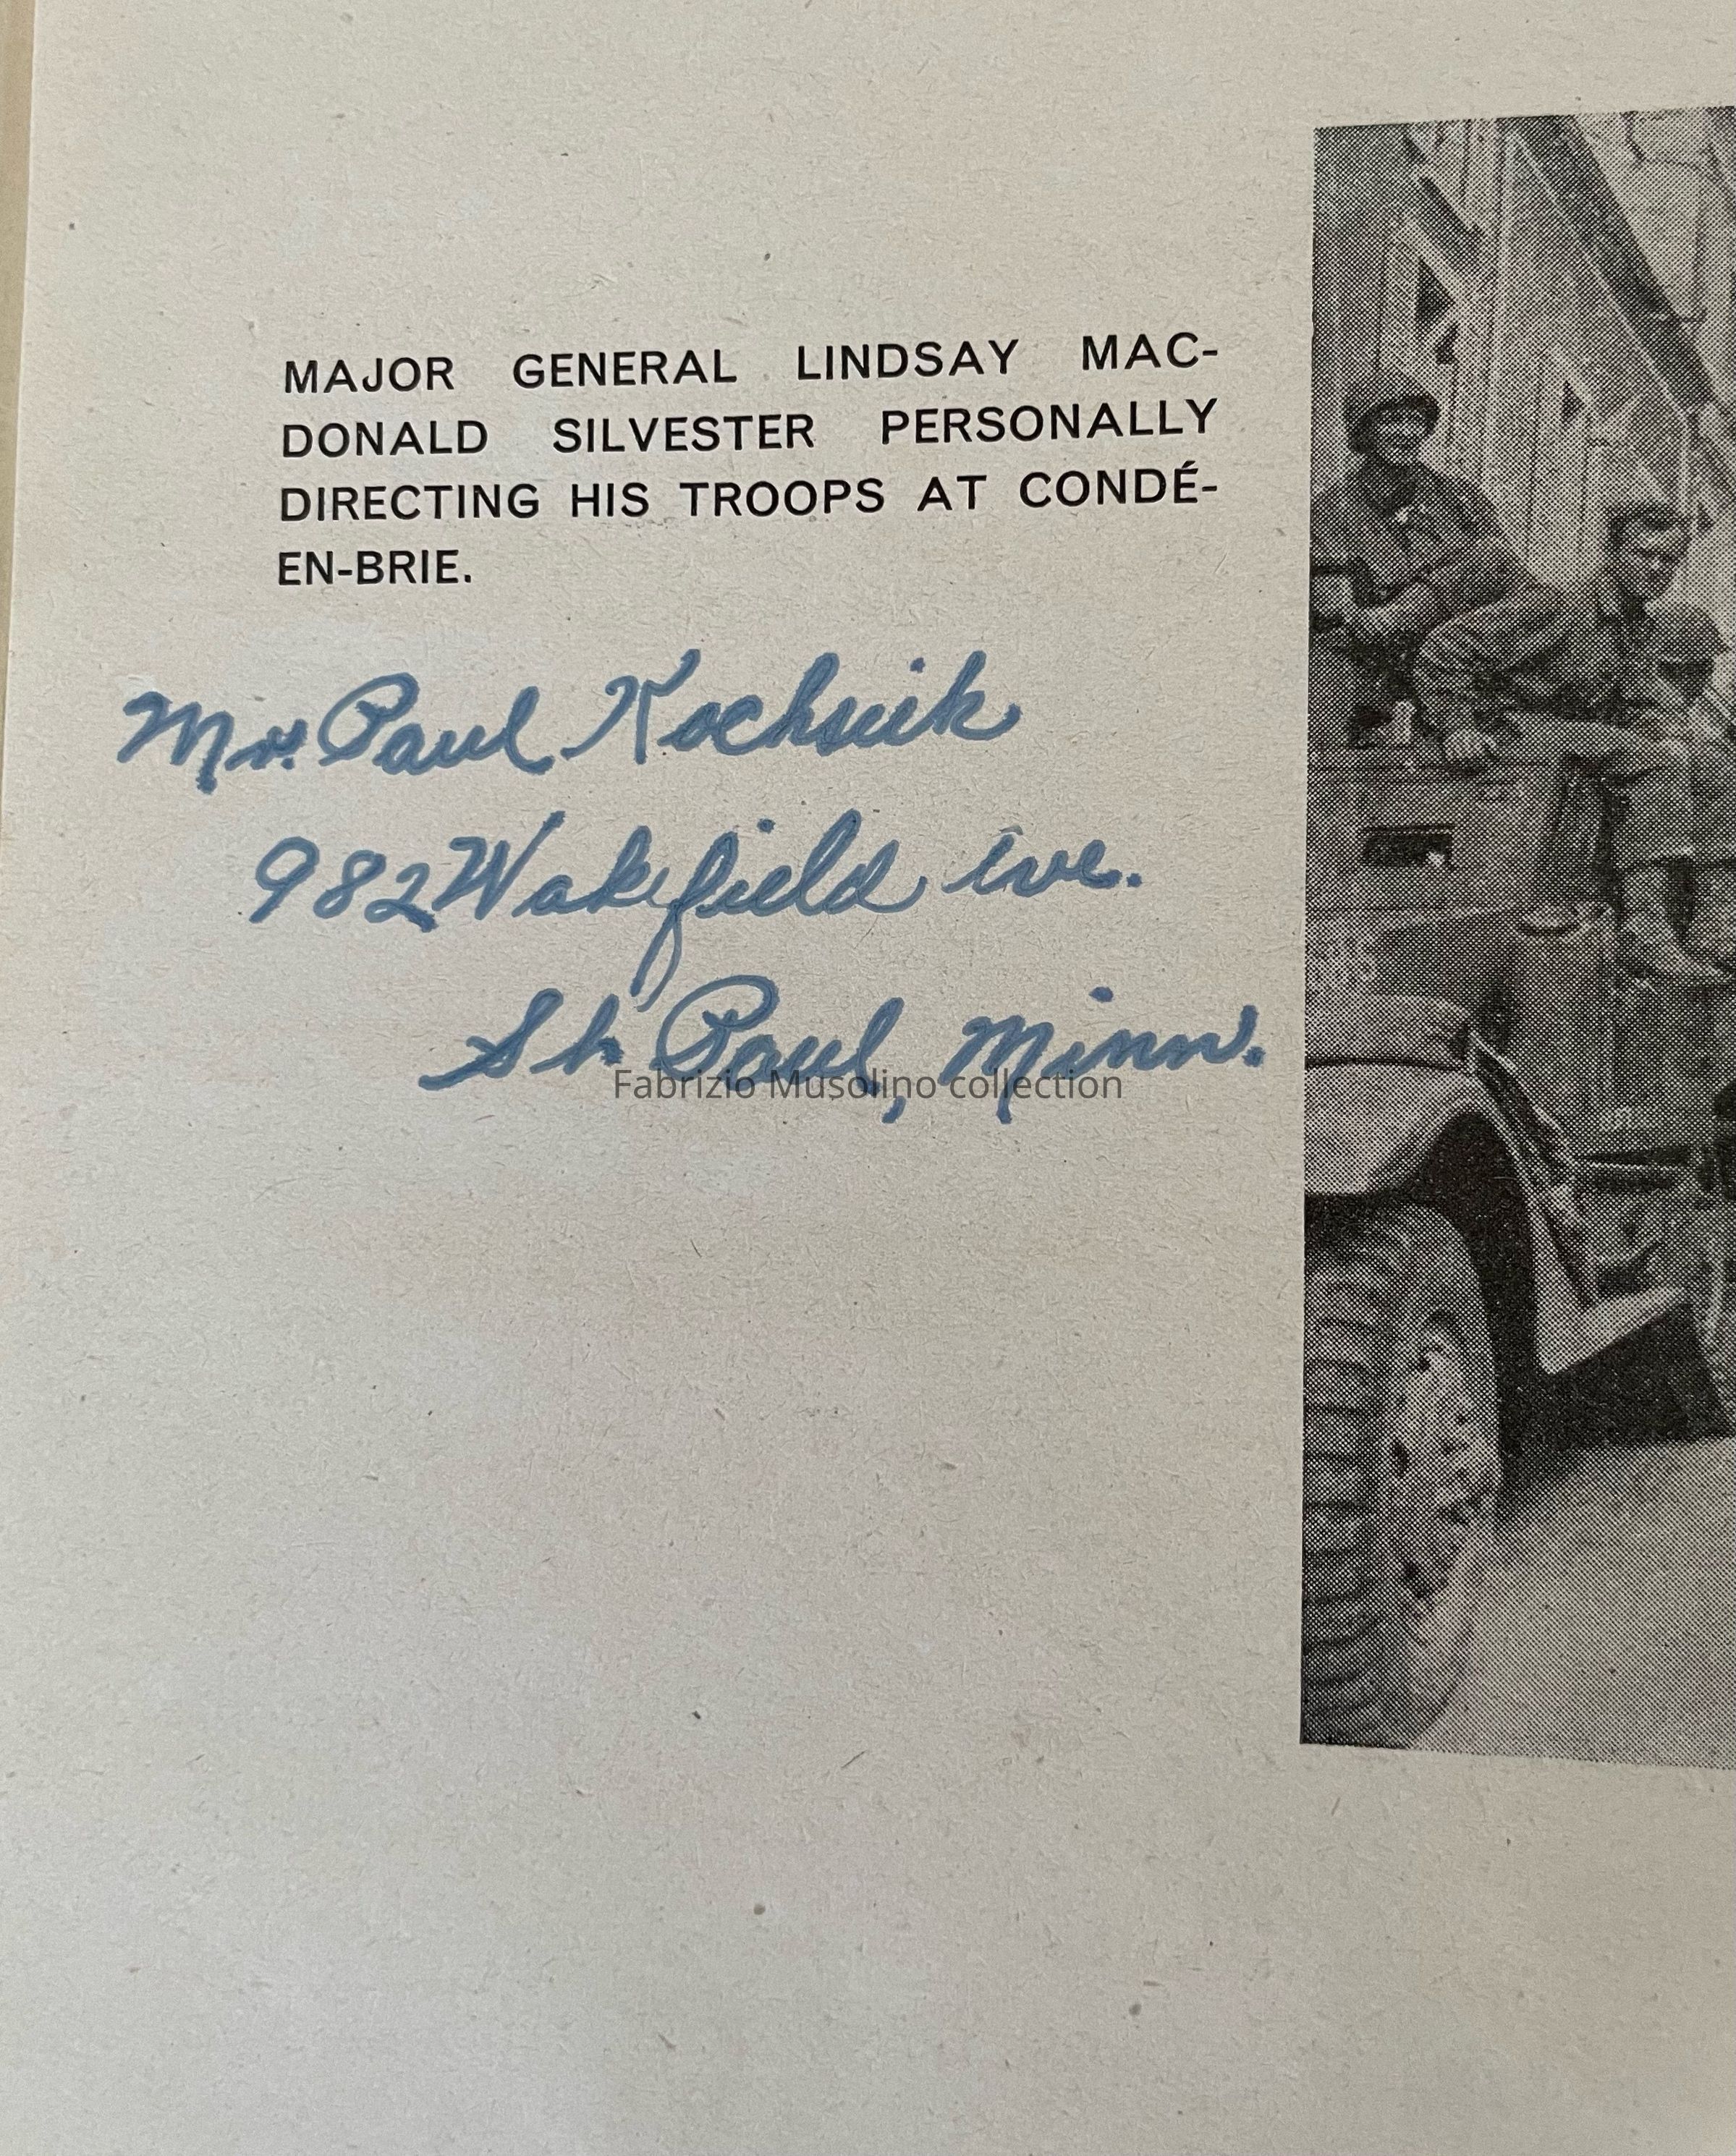 MAJOR GENERAL LINDSAY MAC-
DONALD SILVESTER PERSONALLY
DIRECTING HIS TROOPS AT CONDÉ-
EN-BRIE.
Mr. Paul Kochsiek
982 Wakefield Ave.
St. Paul, Minn.
Fabrizio Musolino collection